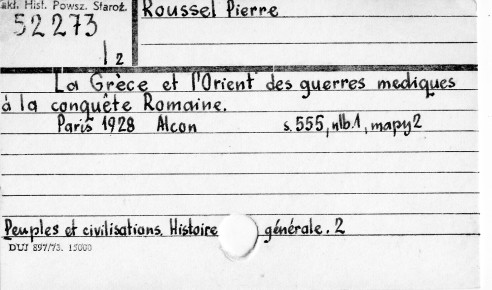 akł. Hist. Powsz. Staroż.
Roussel Pierre
52273
12
La Grèce et l'Orient des guerres mediques
à la conquête Romaine.
Paris 1928 Alcon s. 555, nlb. 1, mapy 2
Peuples et civilisations. Histoire générale. 2
DUJ 897/73. 15000